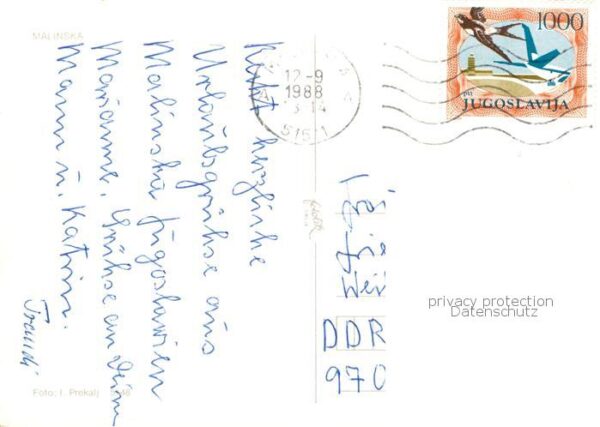 MALINSKA
Recht herzliche
Urlaubsgrühse aus
Malinska Jugoslawien
Marianne. Grühse an Deinen
Mann u. Katrin.
Traudi
Foto: I. Prekalj
12-9
1988
13-14
5151
1000
ptt
JUGOSLAVIJA
DDR
970
privacy protection
Datenschutz